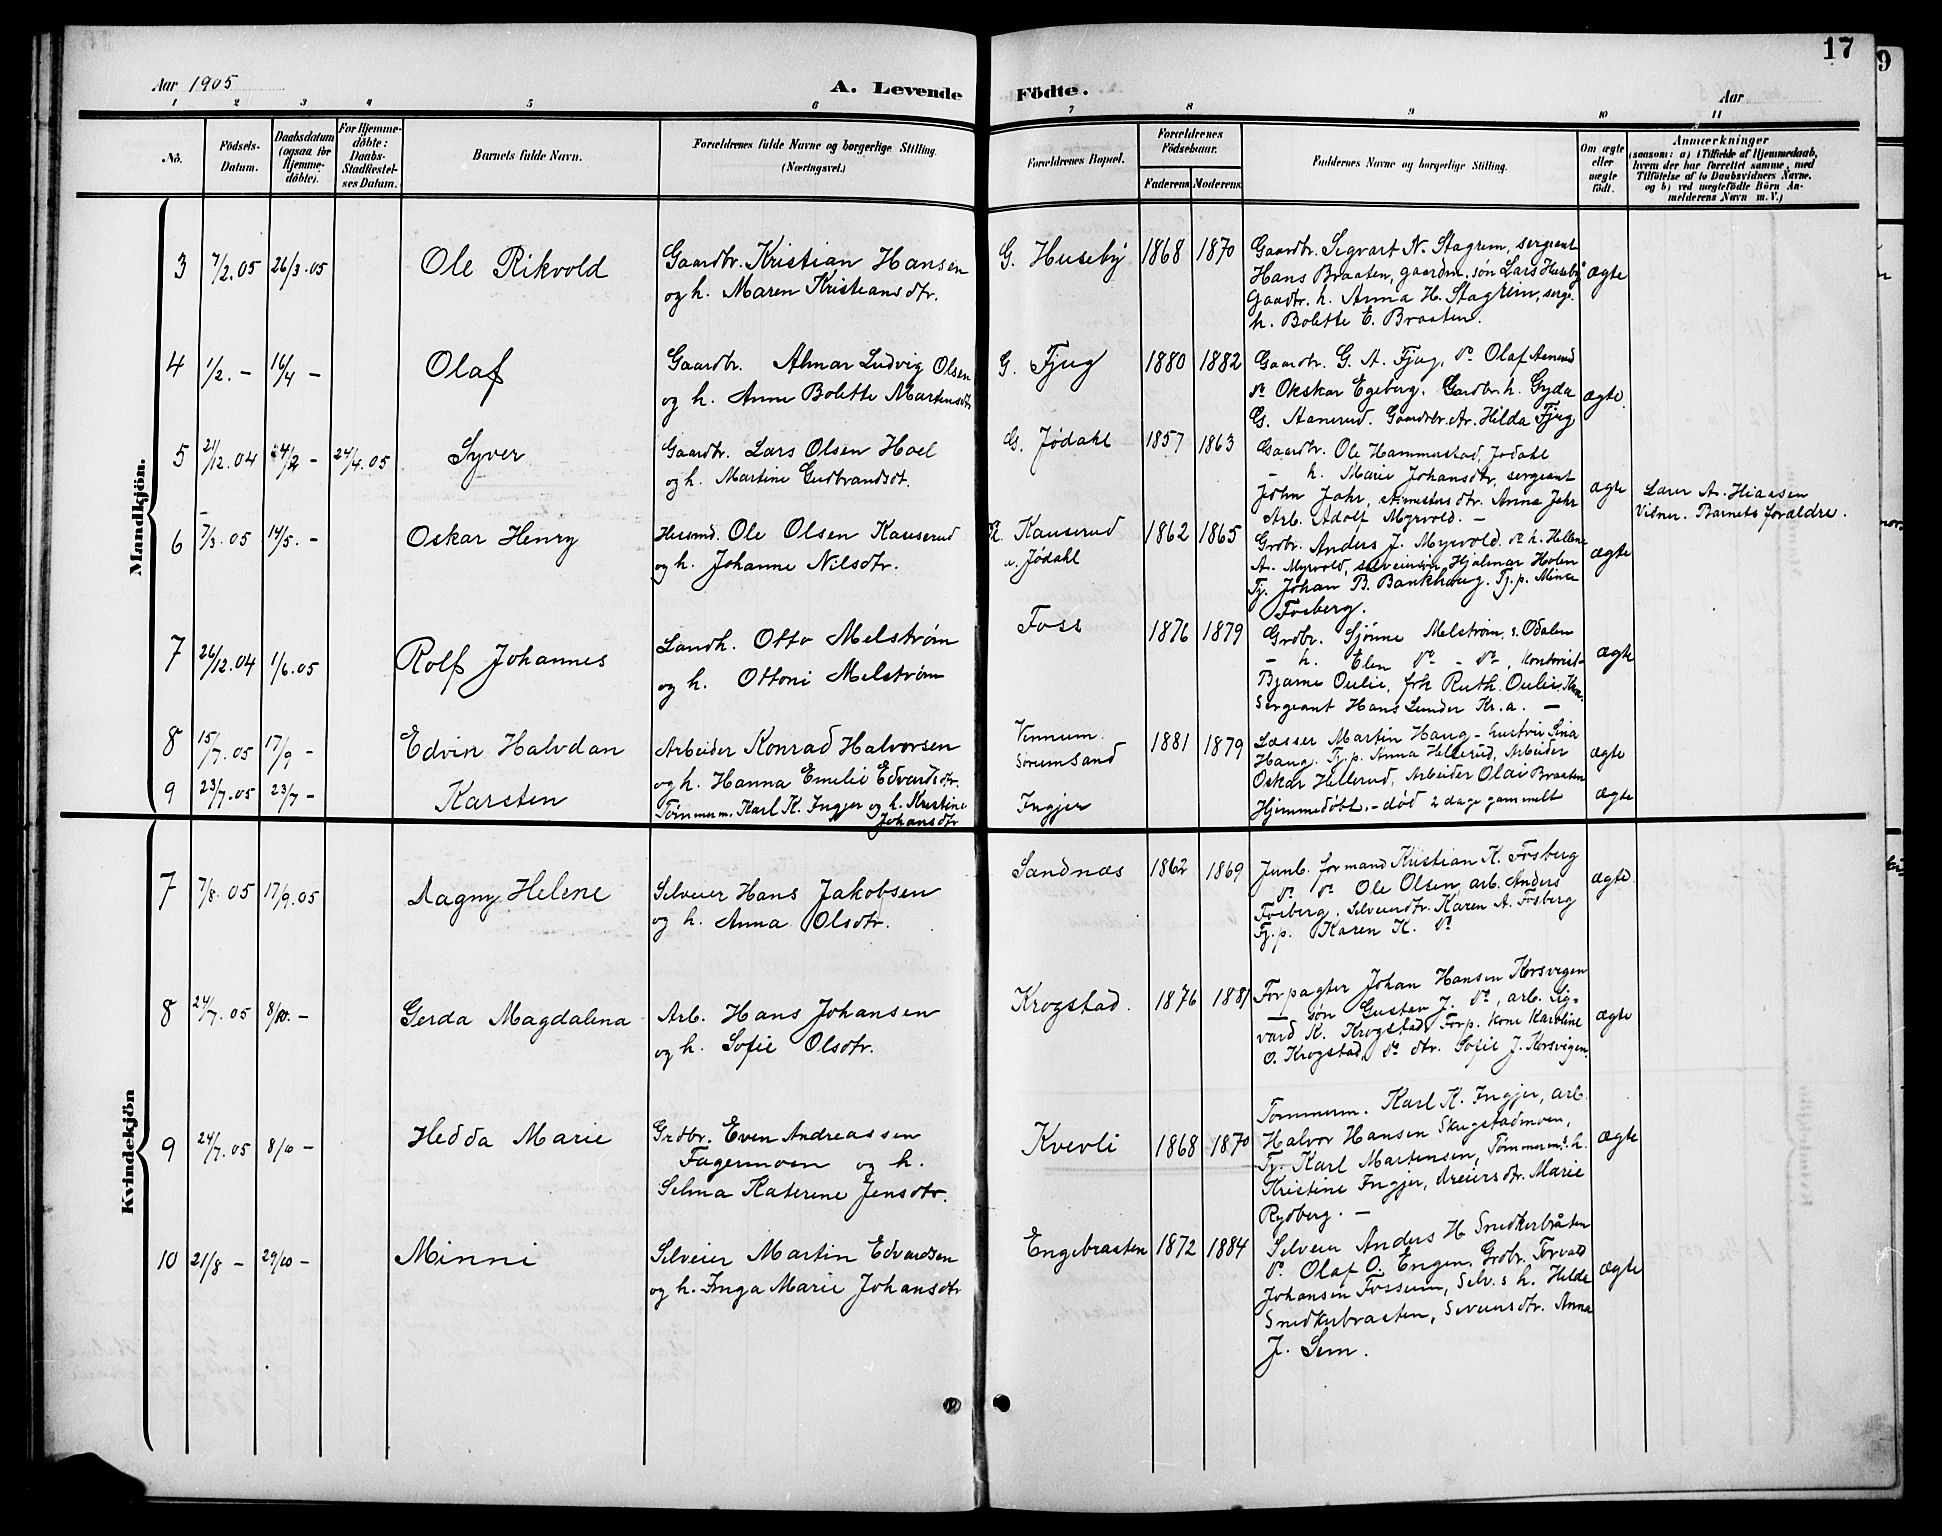 17
9
Aar 1905
A. Levende
Fødte.
Aar
1 2 3 4 5 6 7 8 9 10 11
No.
Födsels-
Datum.
Daabsdatum
(ogsaa for
Hjemme-
döbte).
For Hjemme-
döbte:
Daabs-
Stadfestel-
ses Datum.
Barnets fulde Navn.
Forældrenes fulde Navne og borgerlige Stilling.
(Næringsvei.)
Forældrenes Bopæl.
Forældrenes
Födselsaar.
Faderens
Moderens
Faddernes Navne og borgerlige Stilling.
Om ægte
eller
uægte
födt.
Anmærkninger
(saasom: a) i Tilfælde af Hjemmedaab,
hvem der har forrettet samme, med
Tilföielse af to Daabsvidners Navne.
og b) ved uægtefödte Börn An-
melderens Navn m. V.)
Mandkjön.
3 7/2.05 26/3.05 Ole Rikvold
Gaardbr. Kristian Hansen
og h. Maren Kristiansdtr.
G. Huseby 1868 1870
Gaardbr. Segvart N. Stagrem, sergeant
Hans Braaten, gaardm. søn Lars Huseby
Gaardbr. h. Anna H. Stagrem, serg.
h. Bolette E. Braaten.
ægte
4 1/2. - 16/4 - Olaf
Gaardbr. Almar Ludvig Olsen
og h. Anne Bolette Martensdtr
G. Fjug 1880 1882
Gaardbr. G. A. Fjug, do Olaf Aanerud
do Okskar Egeberg. Gardbr. h. Gyda
G. Aanerud. Gaardbr. Hilda Fjug
ægte.
5 21/12.04 24/2 - 24/4.05 Syver
Gaardbr. Lars Olsen Hoel
og h. Martine Gudbrandsdt.
G. Jødahl 1857 1863
Gaardbr. Ole Hammerstad, Jødahl
- h. Marie Johansdtr, sergeant
John Jahr, Anna Jahr
Arb. Adolf Myrvold. -
ægte
Lærer A. Hiaasen
Vidner. Barnets forældre.
6 7/3.05 14/5. - Oskar Henry
Husmd. Ole Olsen Kauserud
og h. Johanne Nilsdtr.
Kauserud
u. Jødahl
1862 1865
Grdbr. Anders J. Myrvold. do h. Hellene
A. Myrvold, selveiersøn Hjalmar Holen
Tj. Johan B. Bankhaug. Tj. p. Mina
Fosberg.
ægte
7 26/12.04 1/6.05 Rolf Johannes
Landh. Otto Melstrøm
og h. Ottoni Melstrøm
Foss 1876 1879
Grdbr. Sjønne Melstrøm, s. Odalen
- h. Elen do - do -, kontorist-
Bjarne Oulie, frk Ruth Oulie,
Sergeant Hans Lunder Kr.a. -
ægte
8 15/7.05 17/9 - Edvin Halvdan
Arbeider Konrad Halvorsen
og h. Hanna Emelie Edvardsdtr.
Vennum.
Sørumsand
1881 1879
Læsser Martin Haug - hustru Lina
Haug. Tj. p. Anna Hellerud, Arbeider
Oskar Hellerud, Arbeider Olai Braaten
ægte
9 23/7.05 23/7 - Karsten
Tømmerm. Karl K. Ingjer og h. Kristine
Johansdtr
Ingjer
Hjemmedøbt. - død 2 dage gammelt
ægte
Kvindekjön
7 7/8.05 17/9.05 Dagny Helene
Selveier Hans Jakobsen
og h. Anna Olsdtr.
Sandnæs 1862 1869
Jernb. formand Kristian K. Fosberg
do do Ole Olsen, arb. Anders
Fosberg. Selveierdtr. Karen A. Fosberg
Tj. p. Karen K. do
ægte.
8 24/7.05 8/10. - Gerda Magdalena
Arb. Hans Johansen
og h. Sofie Olsdtr.
Krogstad. 1876 1881
Forpagter Johan Hansen Korsvigen
- søn Gustav J. do, arb. Sig-
vard K. Krogstad. Forp. kone Karoline
O. Krogstad, do dtr. Sofie J. Korsvigen.
ægte
9 24/7.05 8/10 - Hedda Marie
Grdbr. Even Andreassen
Fagermoen og h.
Selma Katerene Jensdtr.
Kverli 1868 1870
Tømmerm. Karl K. Ingjer, arb.
Halvor Hansen Skugstadmoen,
Tj. Karl Martensen, Tømmerms. h.
Kristine Ingjer, dreiersdtr. Marie
Rydberg. -
ægte
10 21/8 - 29/10 - Minni
Selveier Martin Edvardsen
og h. Inga Marie Johansdtr
Engebraaten 1872 1884
Selveier Anders H. Snedkerbråten
do Olaf O. Engen, Grdbr. Torvald
Johansen Fossum, Selv.s h. Helda
Snedkerbraaten, Anna
J. Sem.
ægte